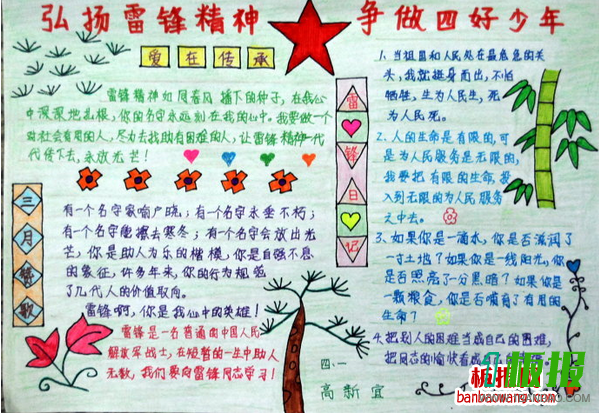 弘扬雷锋精神 争做四好少年
爱在传承
雷锋精神如同春风播下的种子，在我心
中深深地扎根，你的名字永远刻在我的心中。我要做一个
对社会有用的人，尽力去找助有困难的人，让雷锋精神一代
代传下去，永放光芒！
三月赞歌
有一个名字家喻户晓；有一个名字永垂不朽；
有一个名字能擦去寒冬；有一个名字会放出光
芒，你是助人为乐的楷模，你是自强不息
的象征，许多年来，你的行为规范
了几代人的价值取向。
雷锋啊，你是我心中的英雄！
雷锋是一名普通的中国人民
解放军战士，在短暂的一生中助人
无数，我们要向雷锋同志学习！
雷锋日记
1、当祖国和人民处在最危急的关
头，我就挺身而出，不怕
牺牲，生为人民生，死
为人民死。
2、人的生命是有限的，可
是为人民服务是无限的，
我要把有限的生命，投
入到无限的为人民服务
之中去。
3、如果你是一滴水，你是否滋润了
一寸土地？如果你是一线阳光，你
是否照亮了一分黑暗？如果你是
一颗粮食，你是否哺育了有用的
生命？
4、把别人的困难当成自己的困难，
把同志的愉快看成
四、一
高新宜
板报网
banbaowang.com
板报